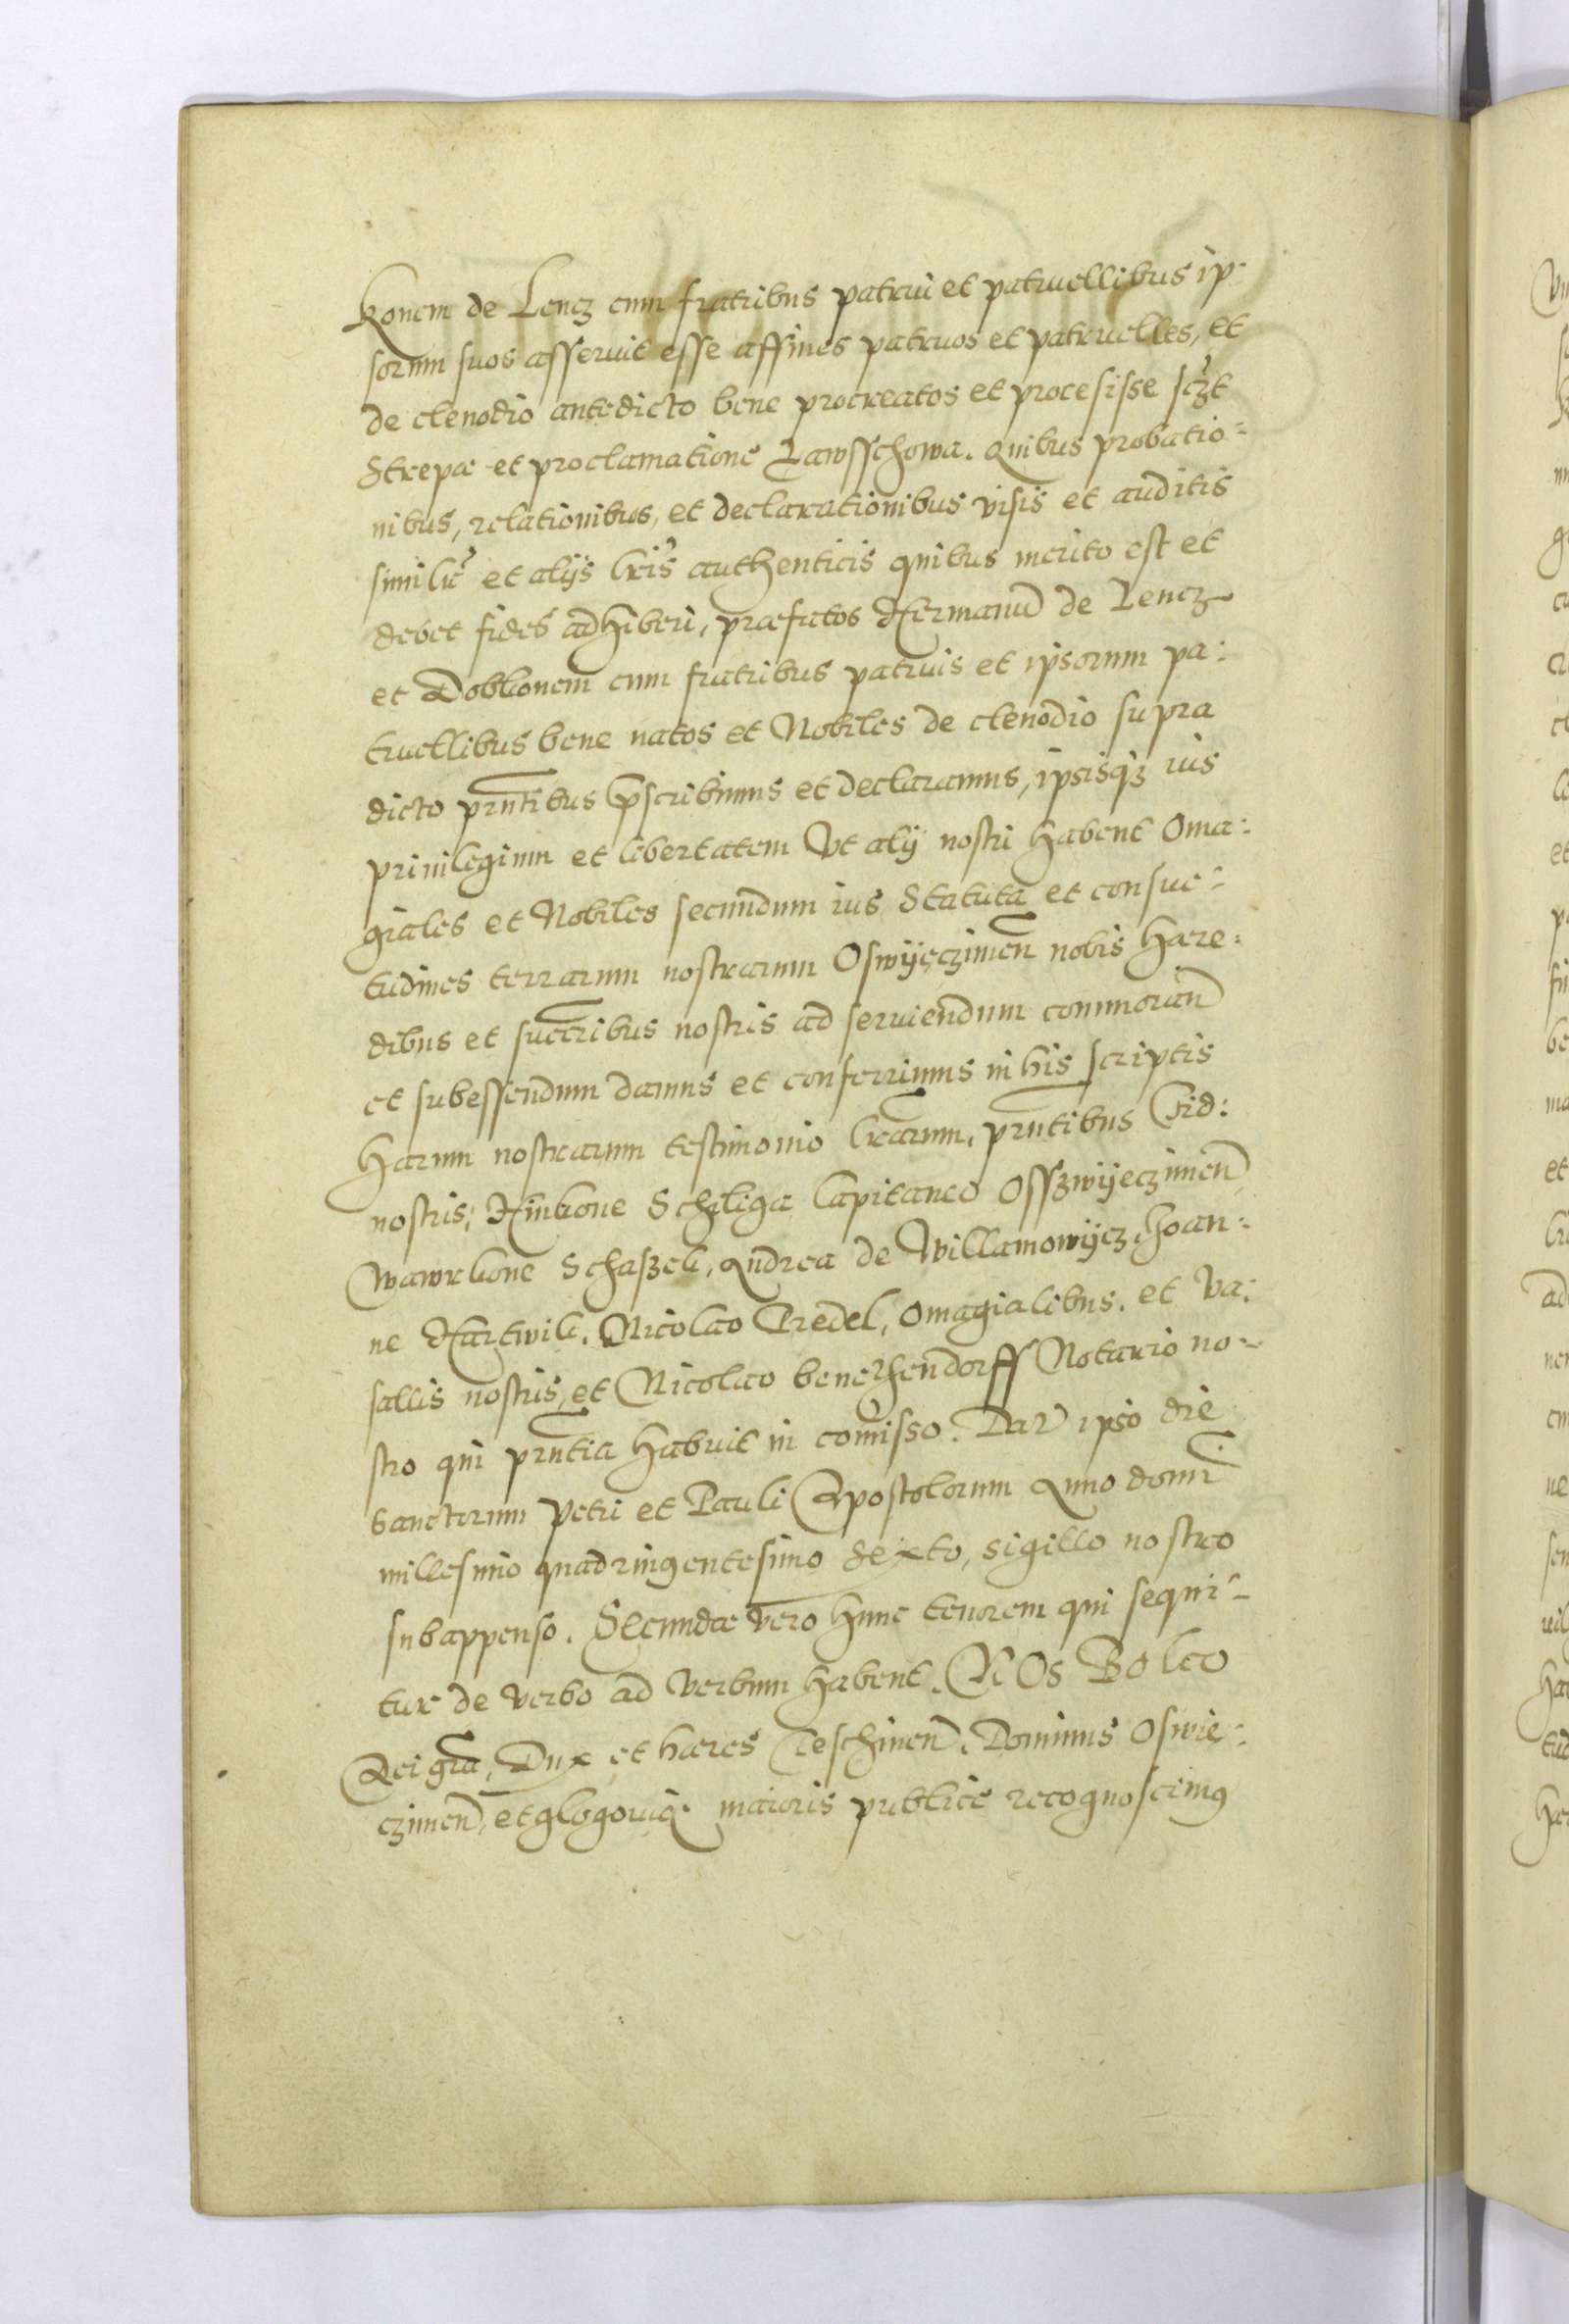 konem de Lencz cum fratribus patrui et patruellibus ip-
sorum suos asseruit esse affines patruos et patruelles, et
de clenodio antedicto bene procreatos et procesisse sczt
Strepa et proclamatione Lawsschowa. Quibus probatio=
nibus, relationibus, et declarationibus visis et auditis
similr et alijs lris authenticis quibus merito est et
debet fides adhiberi, praefatos Hermanū de Lencz
et Dobkonem cum fratribus patruis et ipsorum pa:
truellibus bene natos et Nobiles de clenodio supra
dicto prntibus pscribimus et declaramus, ipsisqz ius
priuilegium et libertatem Vt alij nostri habent Oma:
giales et Nobiles secundum ius Statuta et consue=
tudines terrarum nostrarum Oswijęczimen̄ nobis haere:
dibus et succribus nostris ad seruiendum commoran̄
et subessendum damus et conferrimus in his scriptis
harum nostrarum testimonio lrarum, prntibus fid:
nostris, Hinkone Scheliga Capitaneo Osszwijeczimen̄
Wawrkone Schaszek, Andrea de Willamowijcz, Joan=
ne Hartwik, Nicolao Bredel, Omagialibus, et Va:
sallis nostris, et Nicolao beneschendorff Notario no=
stro qui prntia habuit in comisso. Dat ipso die
Sanctorum Petri et Pauli Apostolorum Anno domī
millesimo quadringentesimo sexto, sigillo nostro
subappenso. Secundae vero hunc tenorem qui sequi=
tur de verbo ad verbum habent. NOs Bolco
Dei gra, Dux et haeres Teschinen̄, Dominus Oswie:
czimen̄, et glogouiae maioris publice recognoscimus